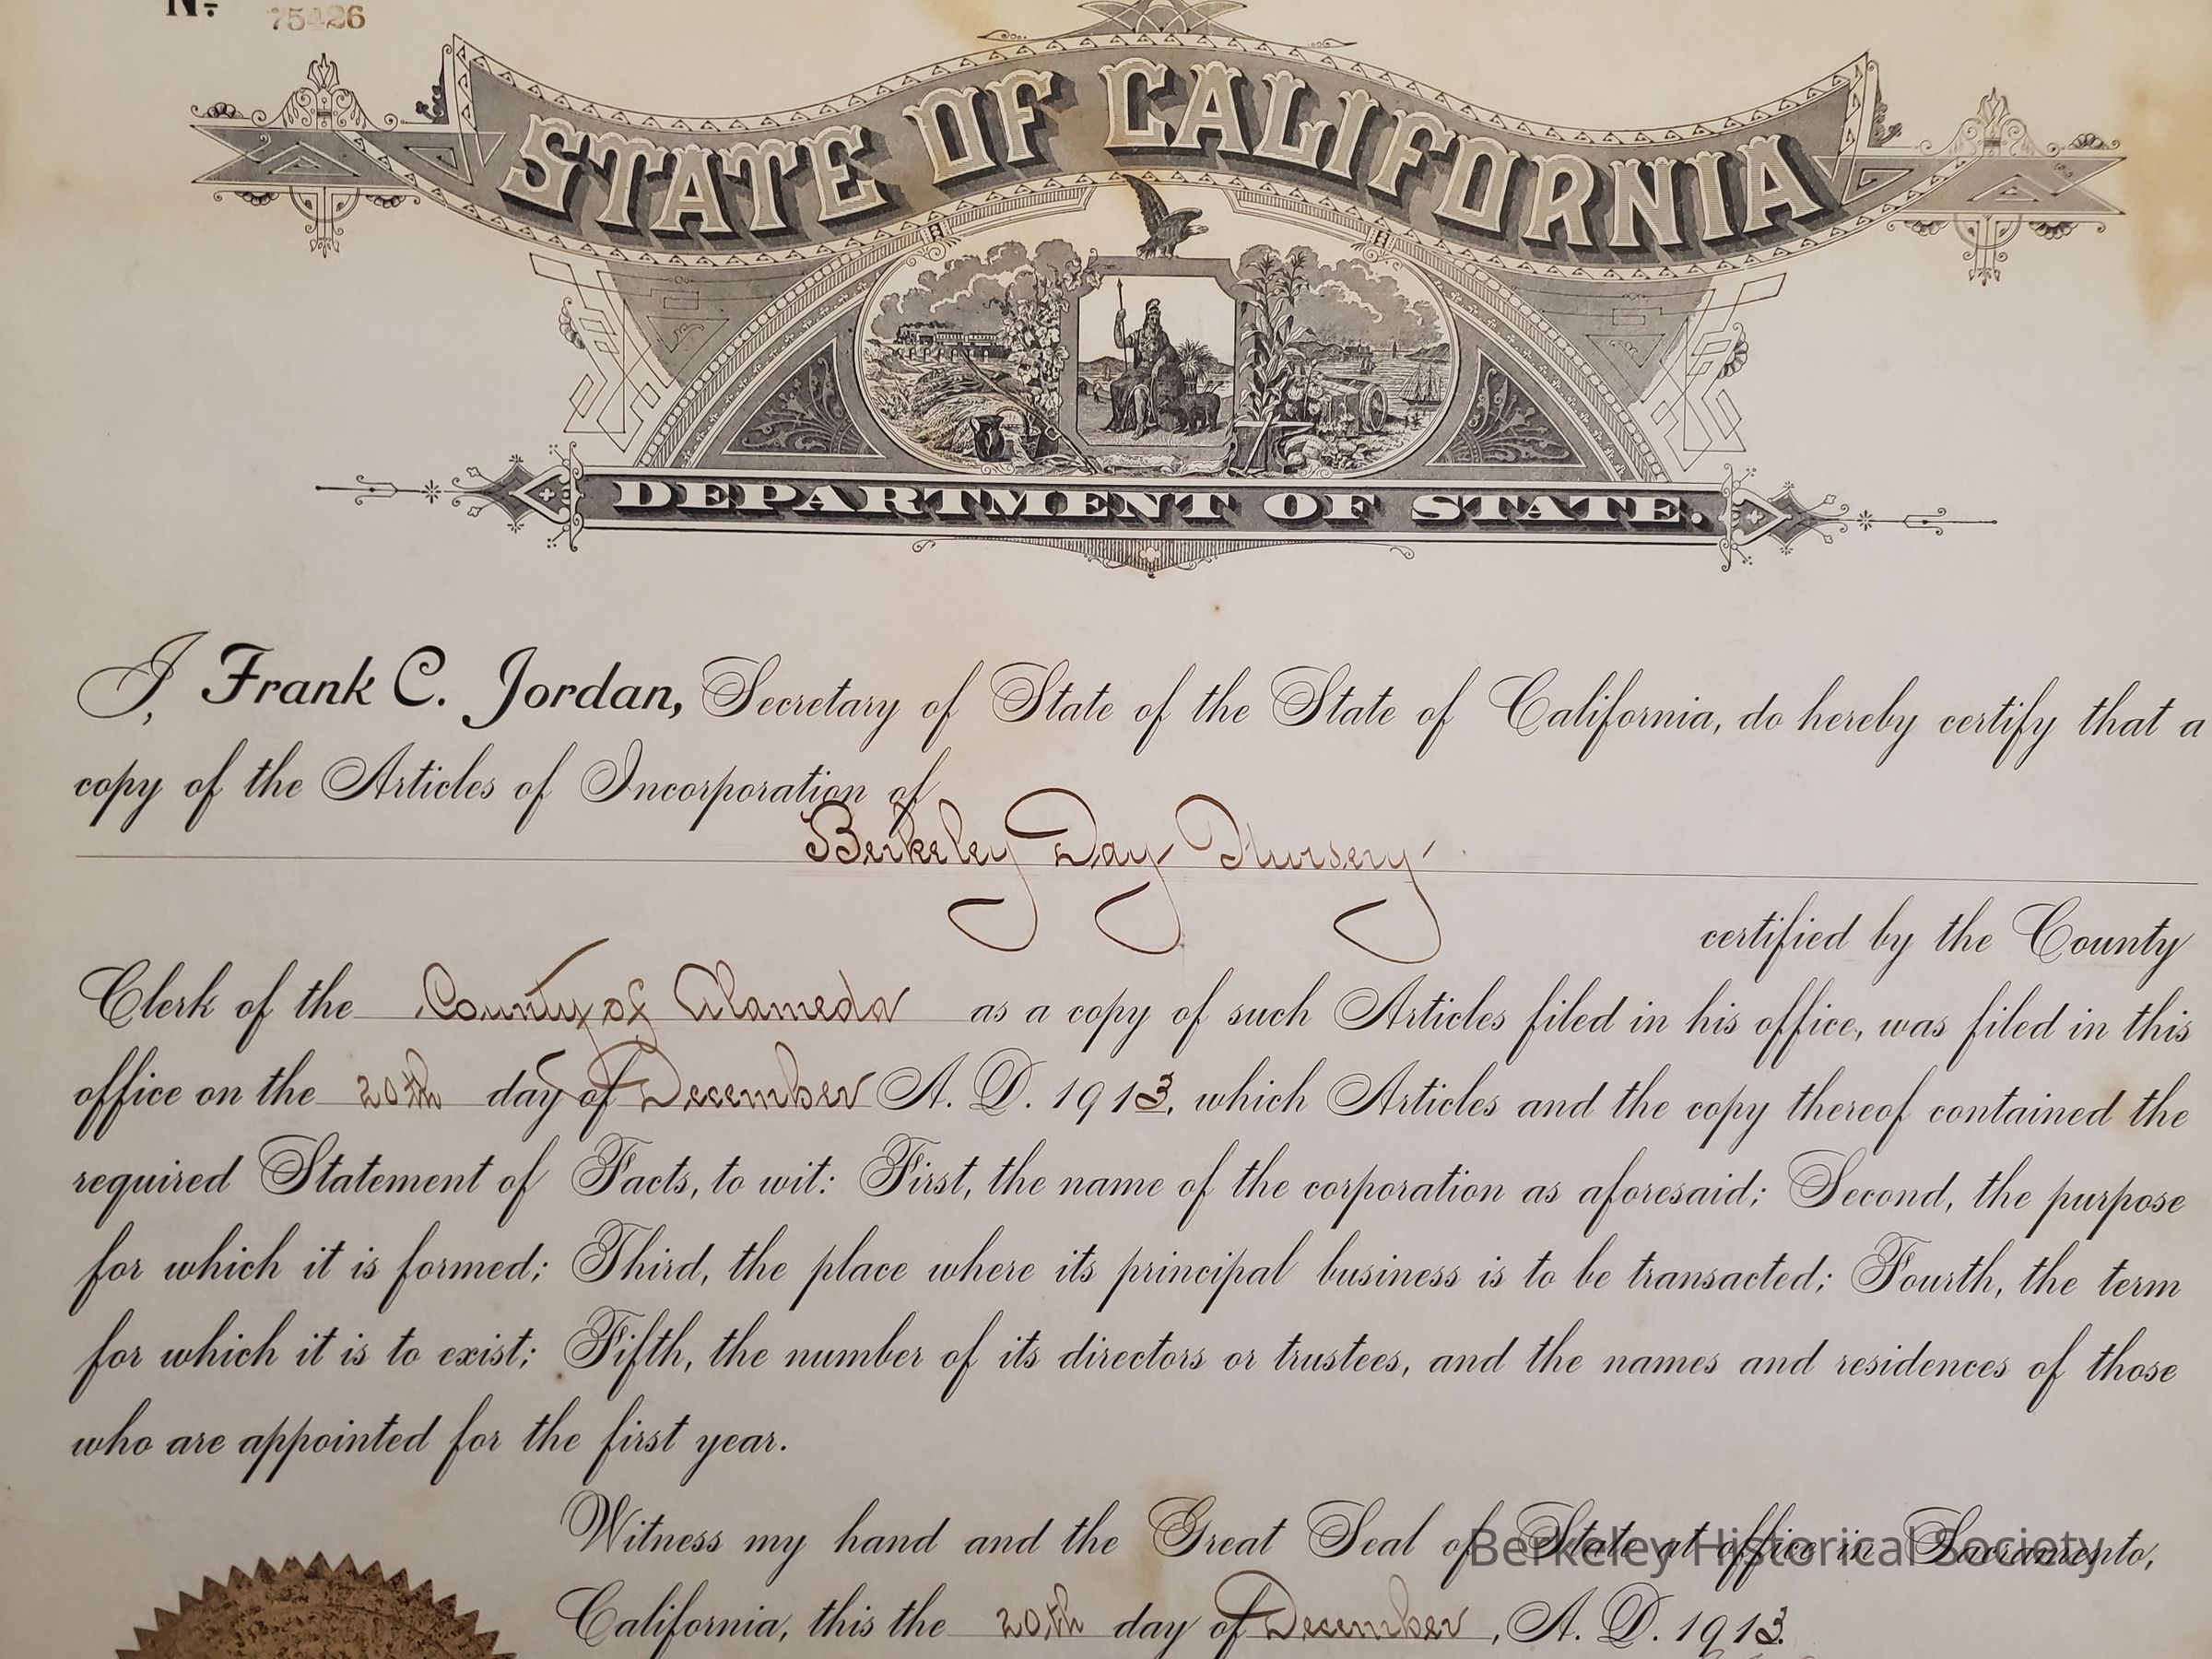 No. 75426
STATE OF CALIFORNIA
DEPARTMENT OF STATE.
I, Frank C. Jordan, Secretary of State of the State of California, do hereby certify that a
copy of the Articles of Incorporation of
Berkeley Day Nursery
certified by the County
Clerk of the County of Alameda as a copy of such Articles filed in his office, was filed in this
office on the 20th day of December A. D. 1913, which Articles and the copy thereof contained the
required Statement of Facts, to wit: First, the name of the corporation as aforesaid; Second, the purpose
for which it is formed; Third, the place where its principal business is to be transacted; Fourth, the term
for which it is to exist; Fifth, the number of its directors or trustees, and the names and residences of those
who are appointed for the first year.
Witness my hand and the Great Seal of State at office in Sacramento,
Berkeley Historical Society
California, this the 20th day of December, A. D. 1913.